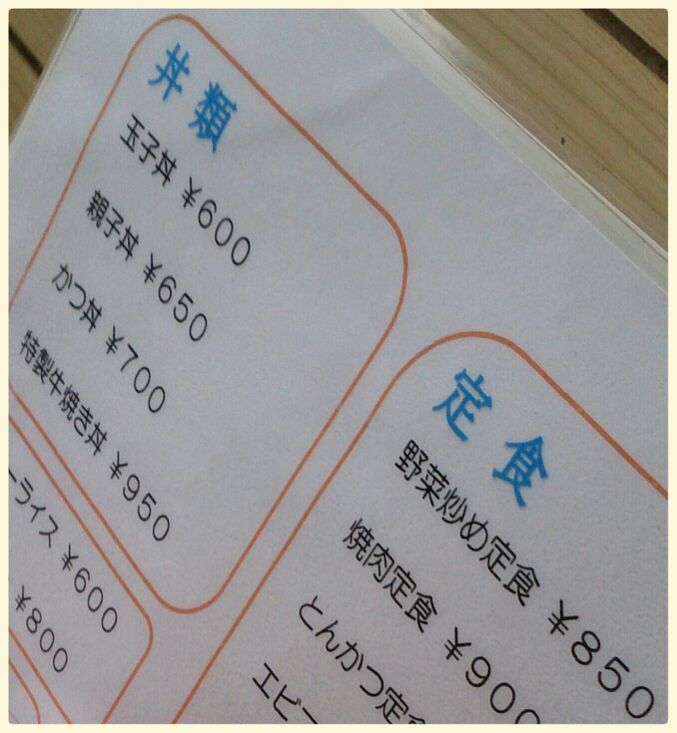 丼類
玉子丼 ¥600
親子丼 ¥650
かつ丼 ¥700
特製牛焼き丼 ¥950
ーライス ¥600
¥800
定食
野菜炒め定食 ¥850
焼肉定食 ¥900
とんかつ定食
エビ